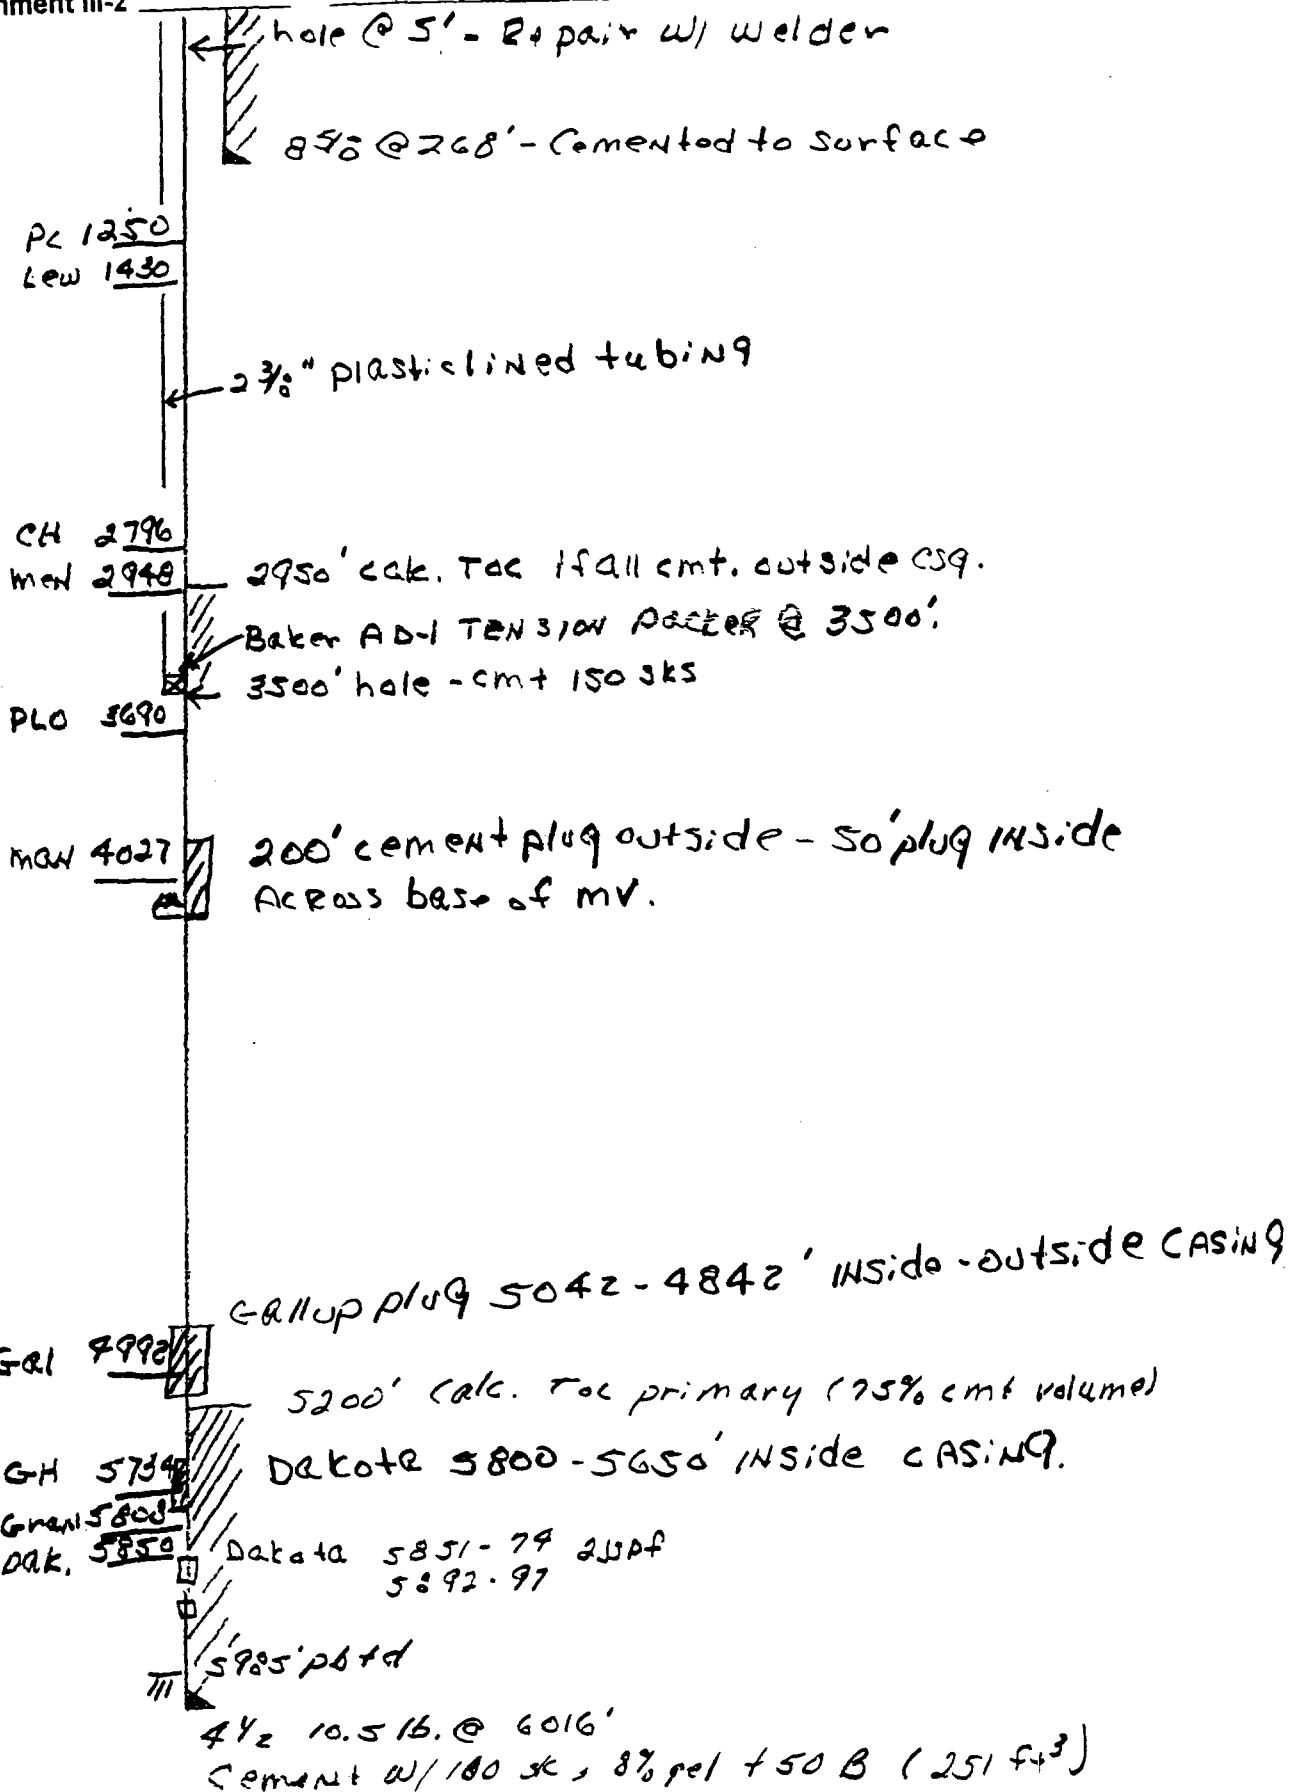 nment III-2
hole @ 5' - Repair w/ welder
8 5/8 @ 268' - Cemented to surface
PC 1250
Lew 1430
2 3/8" plasticlined tubing
CH 2796
men 2948
2950' calc. TOC if all cmt. outside csg.
Baker AD-1 TENSION packer @ 3500'.
3500' hole - cmt 150 sks
PLO 3690
man 4027
200' cement plug outside - 50' plug inside
Across base of mv.
Gallup plug 5042 - 4842' inside - outside casing
Gal 4992
5200' calc. Toc primary (75% cmt volume)
GH 5734
Dakota 5800 - 5650' inside casing.
Gran 5808
Dak. 5850
Dakota 5851 - 74 2jspf
5892 - 97
5985' pbtd
4 1/2 10.5 lb. @ 6016'
Cement w/ 100 sk, 8% gel + 50 B (251 ft³)